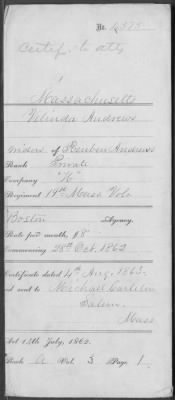 No.
Certif. to atty
Massachusetts
Velinda Andrews
widow of Reuben Andrews
Rank Private
Company "K"
Regiment 19th Mass Vols
Boston Agency.
Rate per month, $8
Commencing 28th Oct. 1862
Certificate dated 4th Aug. 1863.
and sent to Michael Carleton
Salem
Mass
Act 14th July, 1862.
Book A Vol. 3 Page 1